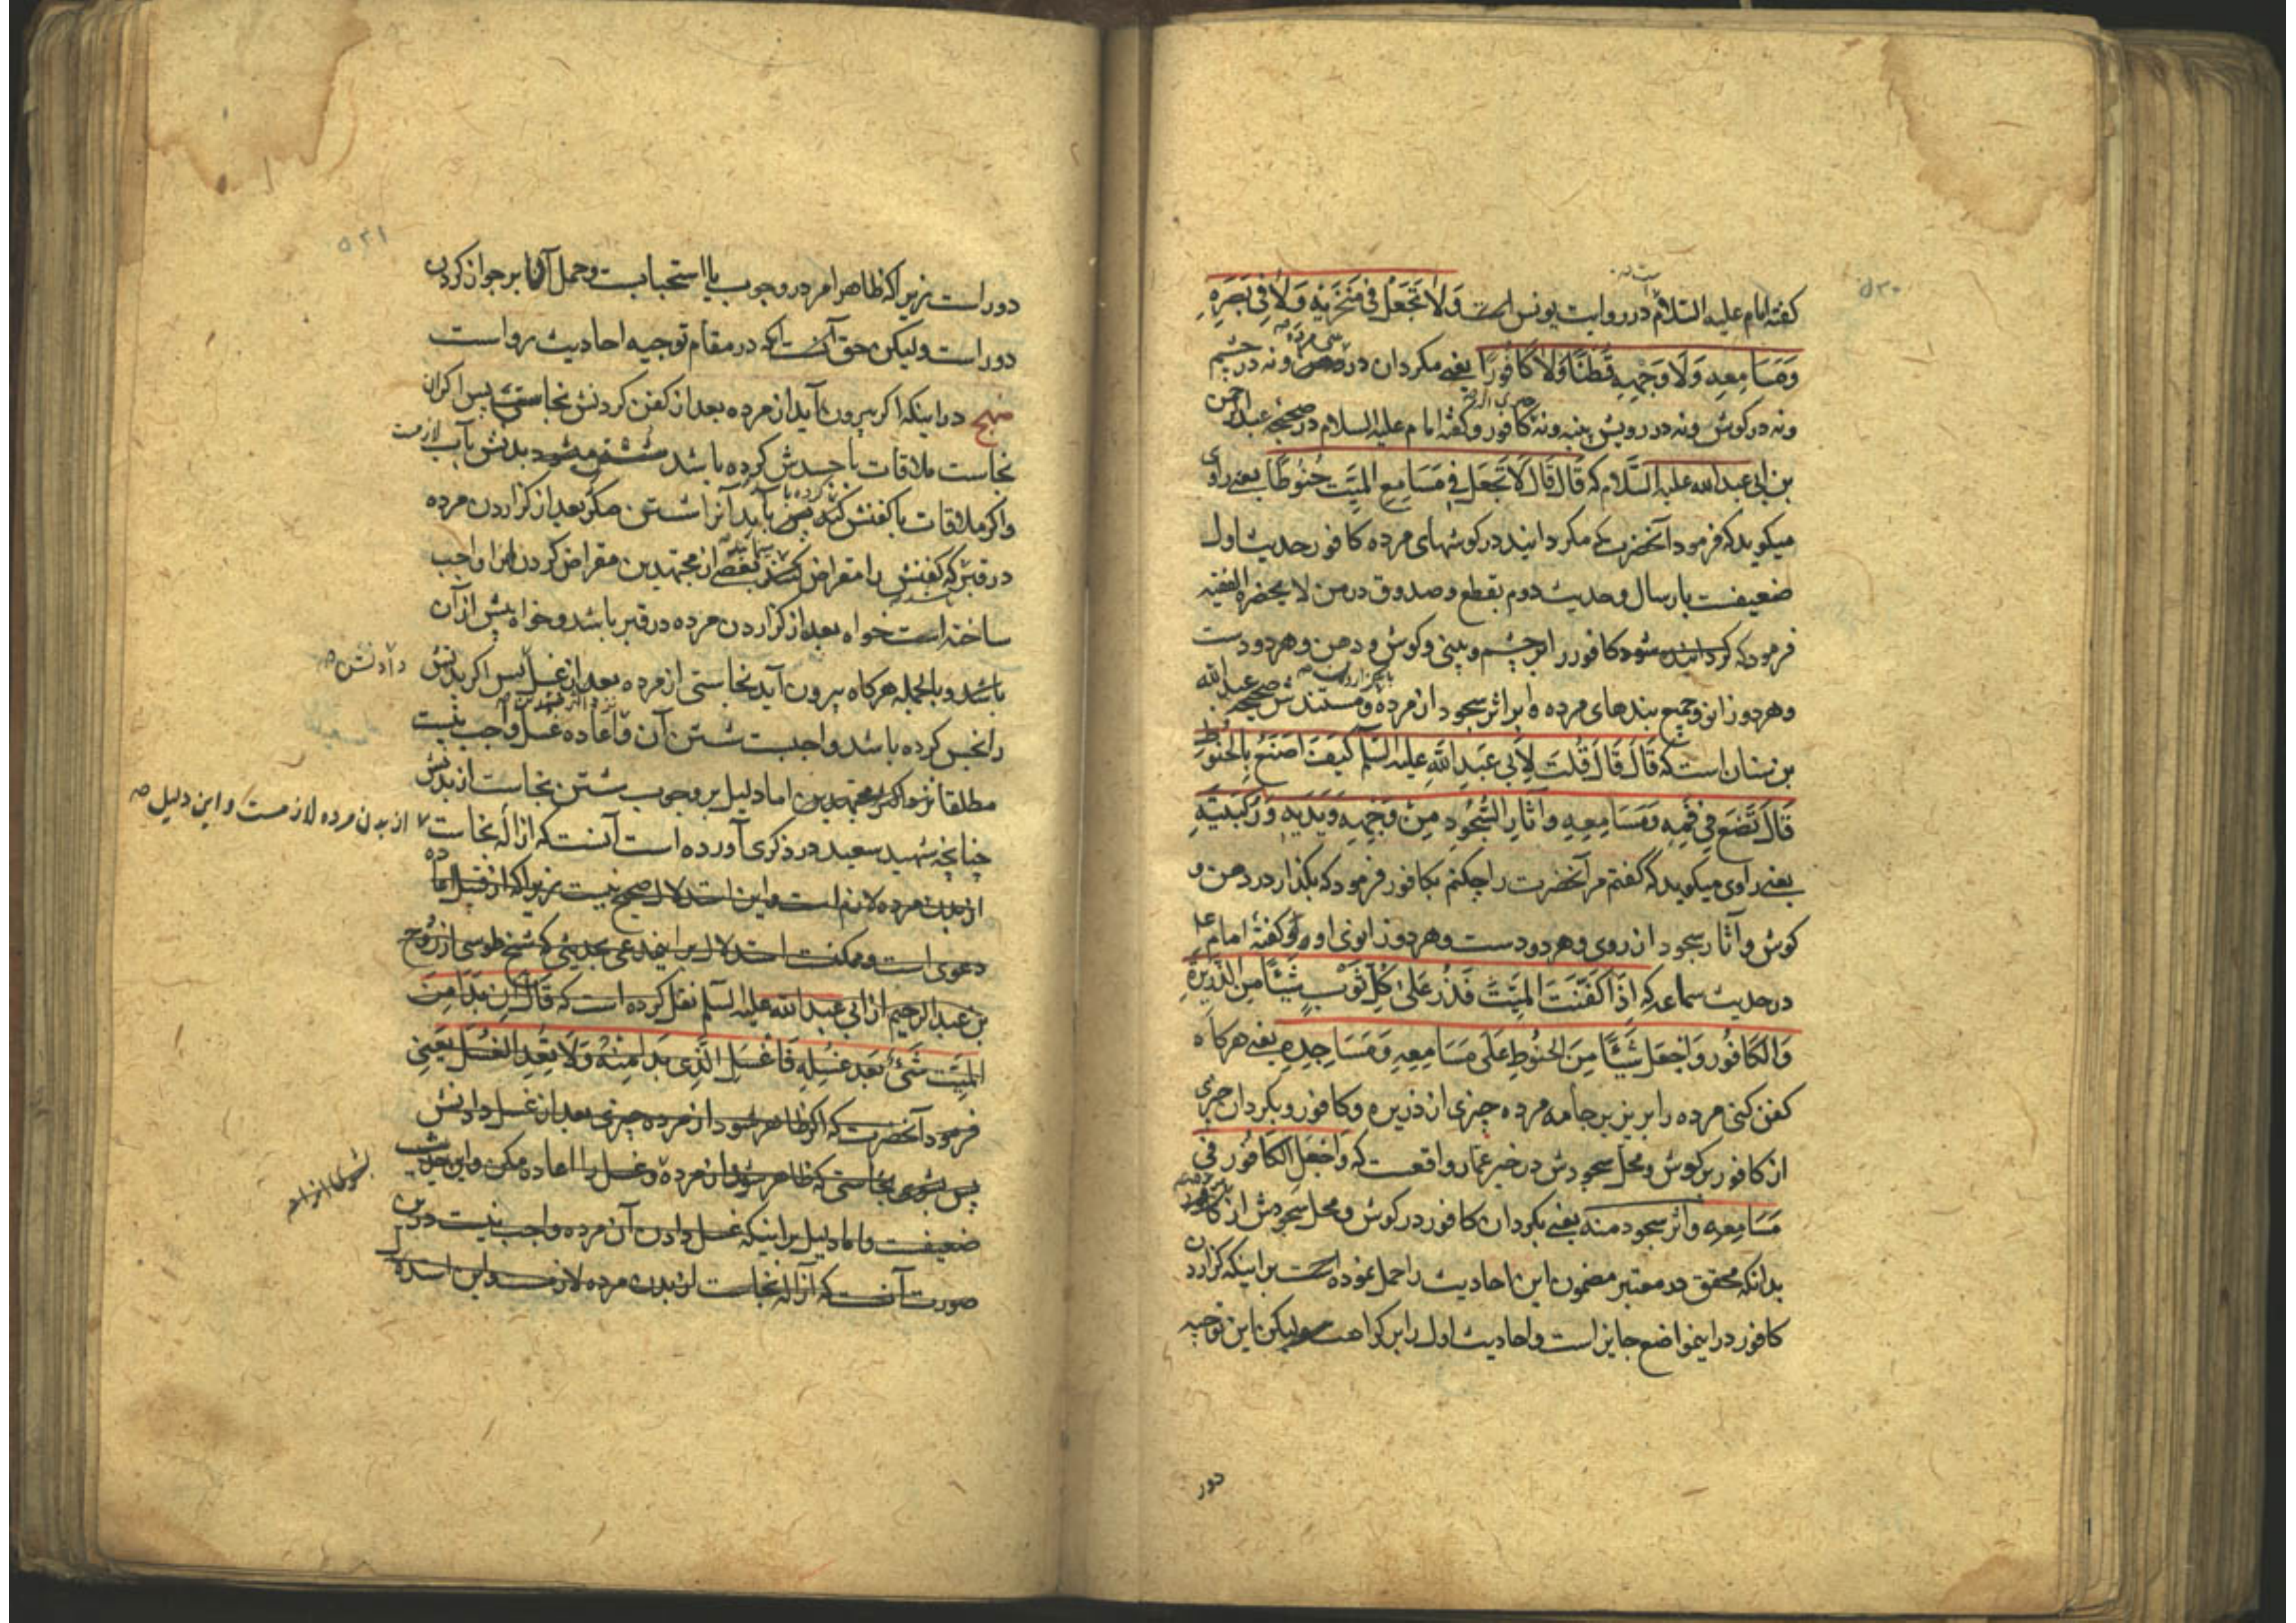 ۵۳۰
کفته امام علیه السلام در روایت یونس است وَلاٰ تَجْعَلْ فی مَنْخَرَیْهِ وَلاٰ فی بَصَرِهِ
وَمَسَامِعِهِ وَلَا وَجْهِهِ قُطْنًا وَلاٰ کَافُورًا یعنی مکردان در ونه در چشم
ونه در کوش ونه در رویش پنبه ونه کافور وکفته امام علیه السلام در صحیحه عبدالرحمن
بن ابی عبدالله علیه السَّلام که قَالَ قَالَ لَا تَجْعَلْ فِی مَسَامِعِ المَیِّتِ حُنُوطًا یعنی راوی
میکوید که فرمود آنحضرت که مکردانید در کوشهای مرده کافور حدیث اول
ضعیفست بارسال وحدیث دوم بقطع وصدوق در من لا یحضره الفقیه
فرمود که کردانیده شود کافور را بر چشم و بینی وکوش و دهن وهر دو دست
وهر دو زانو وجمیع بندهای مرده و بر اثر سجود از مرده ومستندش صحیحه عبدالله
بن سنان است که قَالَ قَالَ قُلْتُ لِأَبی عَبْدِ اللّٰهِ علیه السّلم کَیْفَ اَصْنَعُ بِالْحَنُوطِ
قَالَ تَضَعُ فِی فَمِهِ وَمَسَامِعِهِ وَآثَارِ السُّجُودِ مِنْ وَجْهِهِ وَیَدَیْهِ وَرُکْبَتَیْهِ
یعنی راوی میکوید که گفتم مر آنحضرت را چکنم بکافور فرمود که بکذار در دهن و
کوش وآثار سجود از روی وهر دو دست وهر دو زانوی او وکفته امام ع
در حدیث سماعه که اِذَا کَفَّنْتَ المَیِّتَ فَذُرَّ عَلیٰ کُلِّ ثَوْبٍ شَیْئًا مِنَ الذَّرِیرَةِ
وَالکَافُورِ وَاجْعَلْ شَیْئًا مِنَ الحَنُوطِ عَلَی مَسَامِعِهِ وَمَسَاجِدِهِ یعنی هرکاه
کفن کنی مرده را بریز بر جامه مرده چیزی از ذریره وکافور وبکردان چیزی
از کافور بر کوش ومحل سجودش در خبر عمار واقعست که وَاجْعَلِ الکَافُورَ فی
مَسَامِعِهِ واثر سجود منه یعنی بکردان کافور در کوش ومحل سجودش از
بدانکه محقق در معتبر مضمون این احادیث را حمل نموده است بر اینکه کزاردن
کافور در اینمواضع جایز است واحادیث اول را بر کراهت ولیکن این توجیه
دور
۵۳۱
دور است زیرا که ظاهر امر در وجوب یا استحبابست وحمل آنها بر جواز کردن
دور است ولیکن حق آنست که در مقام توجیه احادیث رواست
منهج در اینکه اکر بیرون آید از مرده بعد از کفن کردنش نجاستی پس اکر آن
نجاست ملاقات با جسدش کرده باشد بدنش بآب لازمست
واکر ملاقات با کفنش باید آنرا شستن مکر بعد از کزاردن مرده
در قبر که کفنش را مقراض کنند بعضی از مجتهدین مقراض کردن را واجب
ساخته است خواه بعد از کزاردن مرده در قبر باشد وخواه پیش از آن
باشد وبالجمله هرکاه بیرون آید نجاستی از مرده بعد از غسل پس اکر بدنش
دادنش
را نجس کرده باشد واجبست شستن آن واعاده غسل واجب نیست
مطلقا نزد اکثر مجتهدین اما دلیل بر وجوب شستن نجاست از بدنش
چنانچه شهید سعید در ذکری آورده است آنست که ازاله نجاست
از بدن مرده لازمست و این دلیل
از بدن مرده لازم است واین استدلال صحیح نیست زیرا که از قبیل اعاده
دعوی است وممکنست استدلال بر اینمدعی بحدیثی که شیخ طوسی از روح
بن عبدالرحیم از ابی عبدالله علیه السّلم نقل کرده است که قَالَ اِنْ بَدَا مِنَ
المَیِّتِ شَیْءٌ بَعْدَ غُسْلِهِ فَاغْسِلِ الَّذِی بَدَا مِنْهُ وَلَا تُعِدِ الْغُسْلَ یعنی
فرمود آنحضرت که اکر ظاهر شود از مرده چیزی بعد از غسل دادنش
پس بشوی نجاستی که ظاهر شود از مرده وغسل را اعاده مکن واین حدیث
ضعیفست واما دلیل بر اینکه غسل دادن آن مرده واجب نیست درین
صورت آنست که ازاله نجاست از بدن مرده لازمست واین